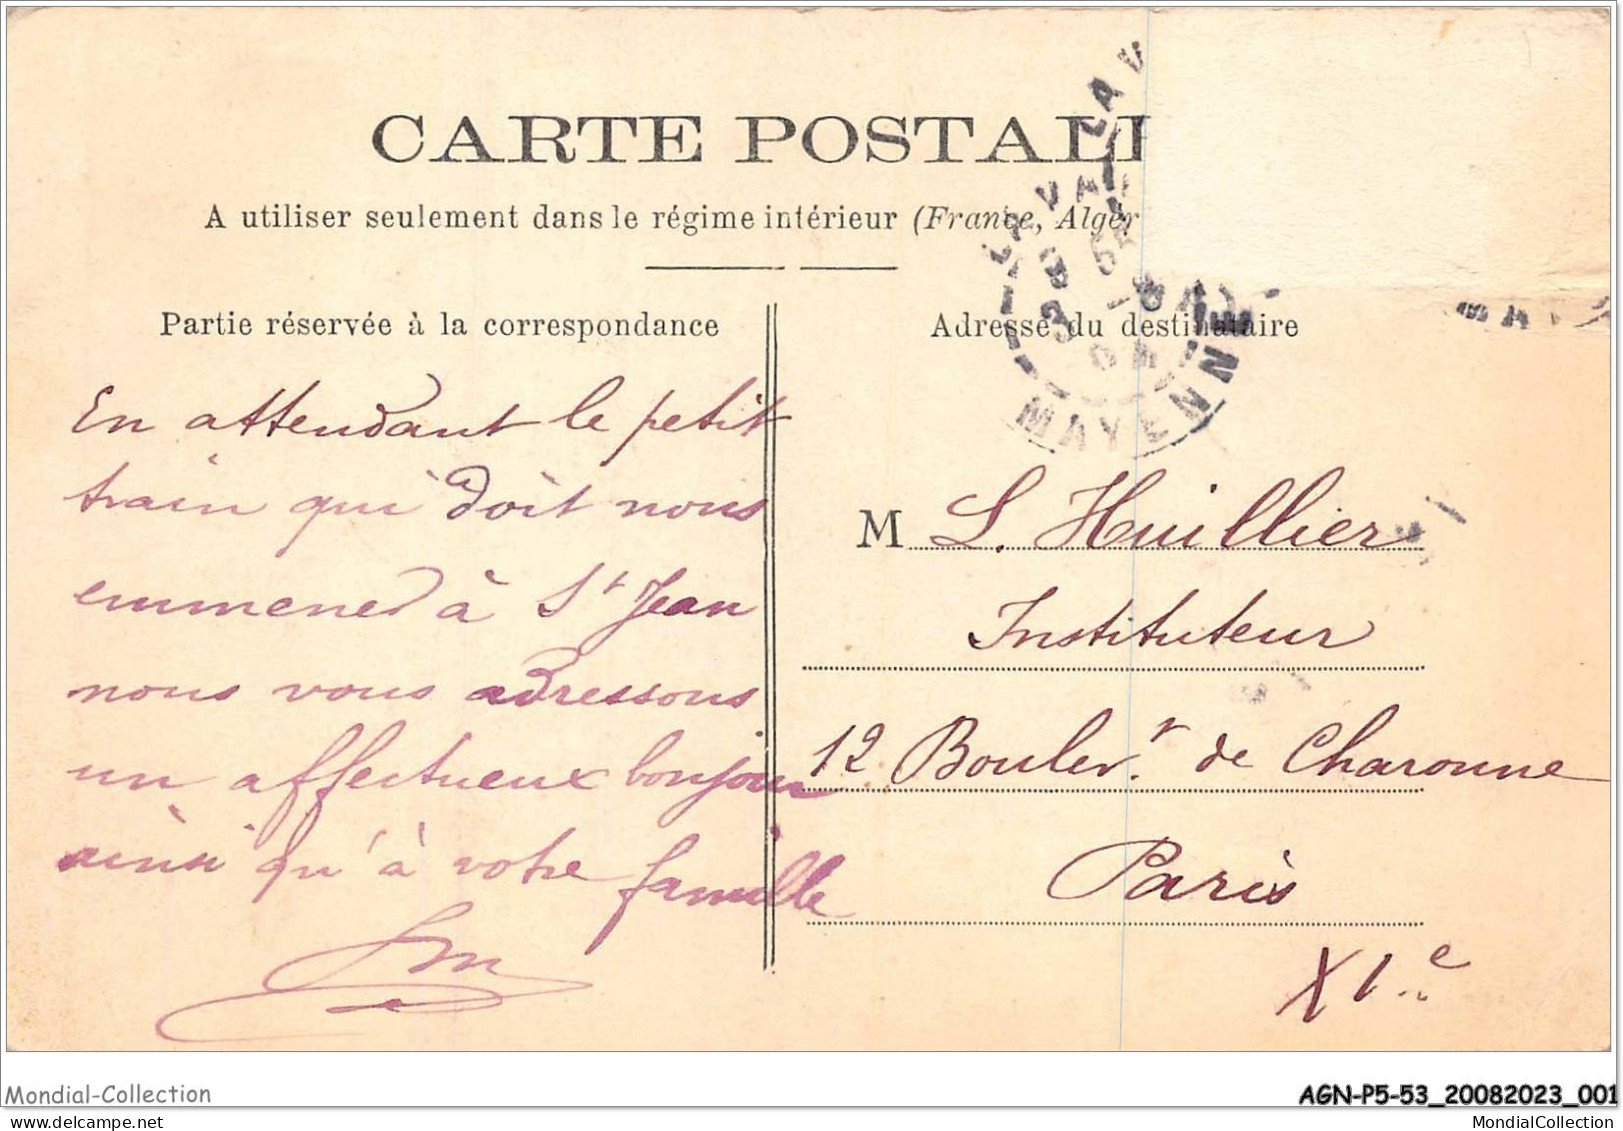 CARTE POSTALE
A utiliser seulement dans le régime intérieur (France, Algér
Partie réservée à la correspondance
En attendant le petit
train qui doit nous
emmener à St Jean
nous vous adressons
un affectueux bonjour
ainsi qu'à votre famille
Adresse du destinataire
LAVAL
MAYENNE
M L. Huillier
Instituteur
12 Boulev.r de Charonne
Paris
XI.e
Mondial-Collection
AGN-P5-53_20082023_001
MondialCollection
MondialCollection.com